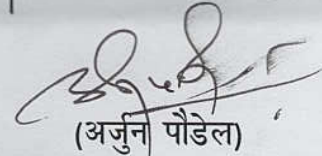 (अर्जुन पौडेल)